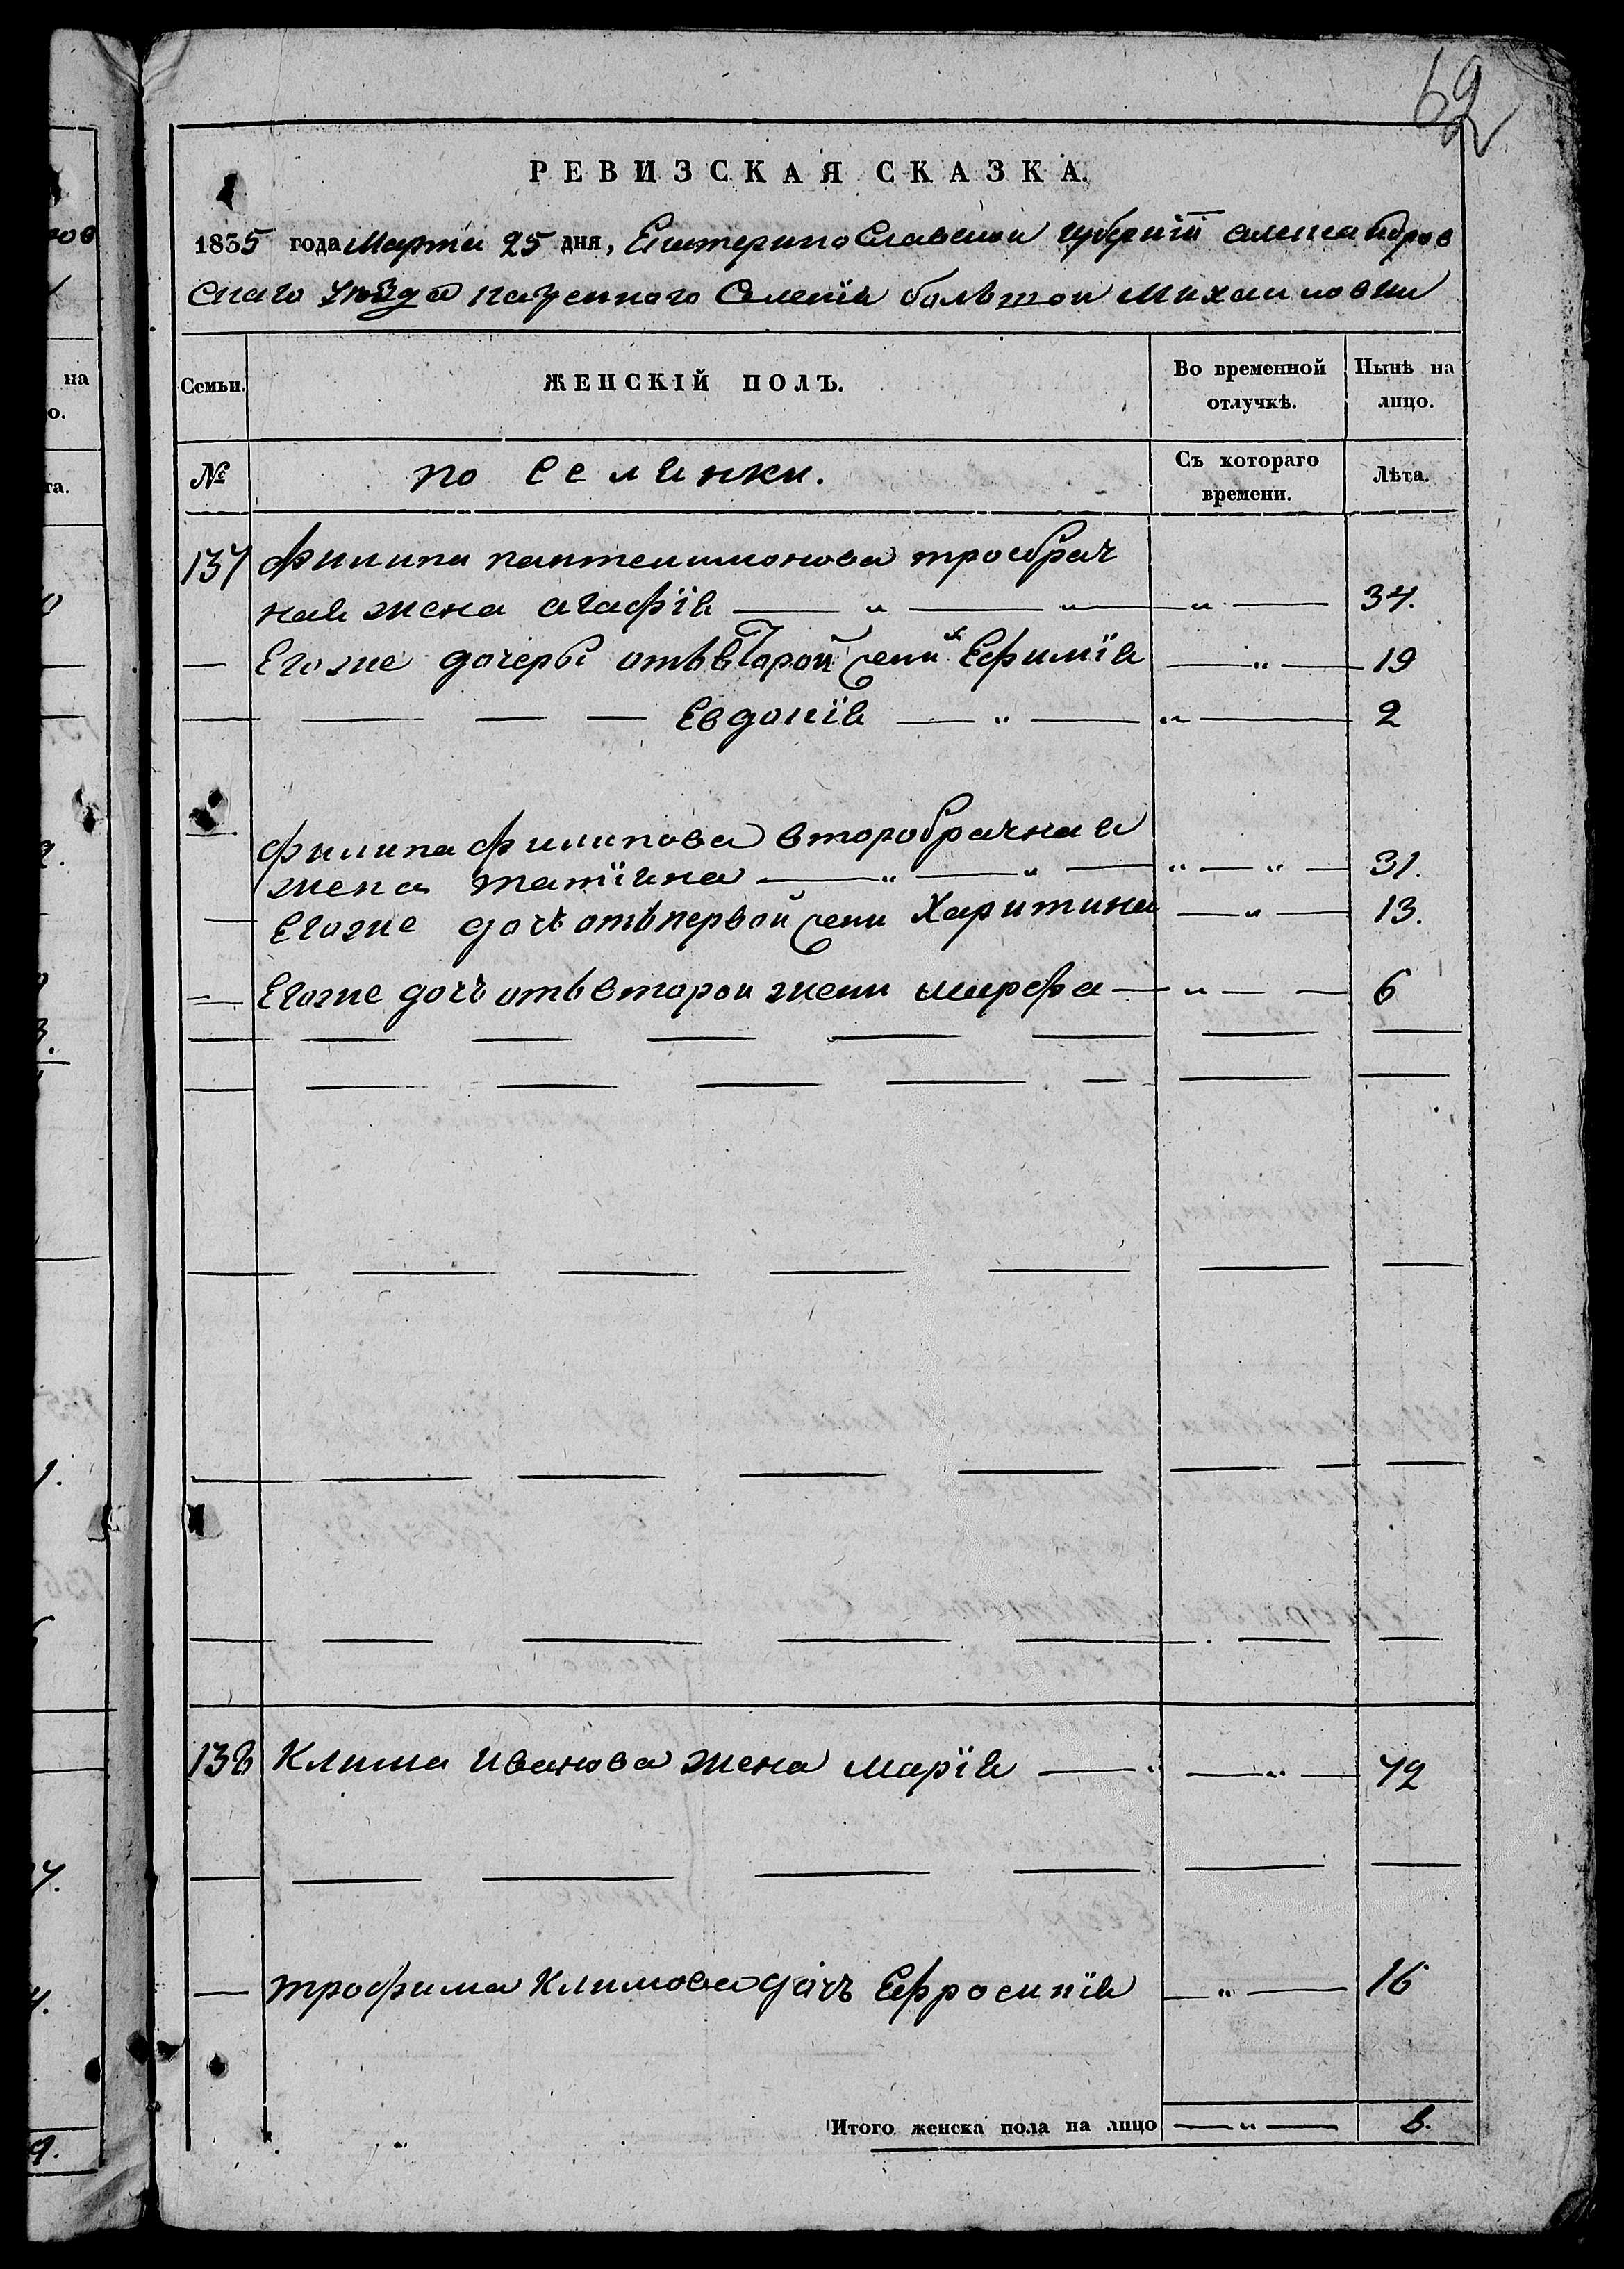 62
РЕВИЗСКАЯ СКАЗКА.
1835 года Марта 25 дня, Екатеринославской губернїи александров
скаго уѣзда казенного Селенїя большой михаиловки
Семьи. ЖЕНСКІЙ ПОЛЪ. Во временной отлучкѣ. Нынѣ на лицо.
№ поселянки. Съ котораго времени. Лѣта.
137 Филипа пантелимонова троебрач
ная жена агафїя — „ — „ — „ — 37.
— Егоже дочеры отъ второй жени Ефимїя — „ — 19
— — — — Евдокїя — „ — „ — 2
— Филипа Филипова второбрачная
жена татїяна — „ — „ — „ — „ — 31.
— Егоже дочъ отъ первой жени Харитина — „ — 13.
— Егоже дочъ отъ второй жени марфа — „ — 6
138 Клима иванова жена марїя — „ — „ — 72
— трофима Климова дочъ Ефросинїя — „ — 16
Итого женска пола на лицо — „ — 8.